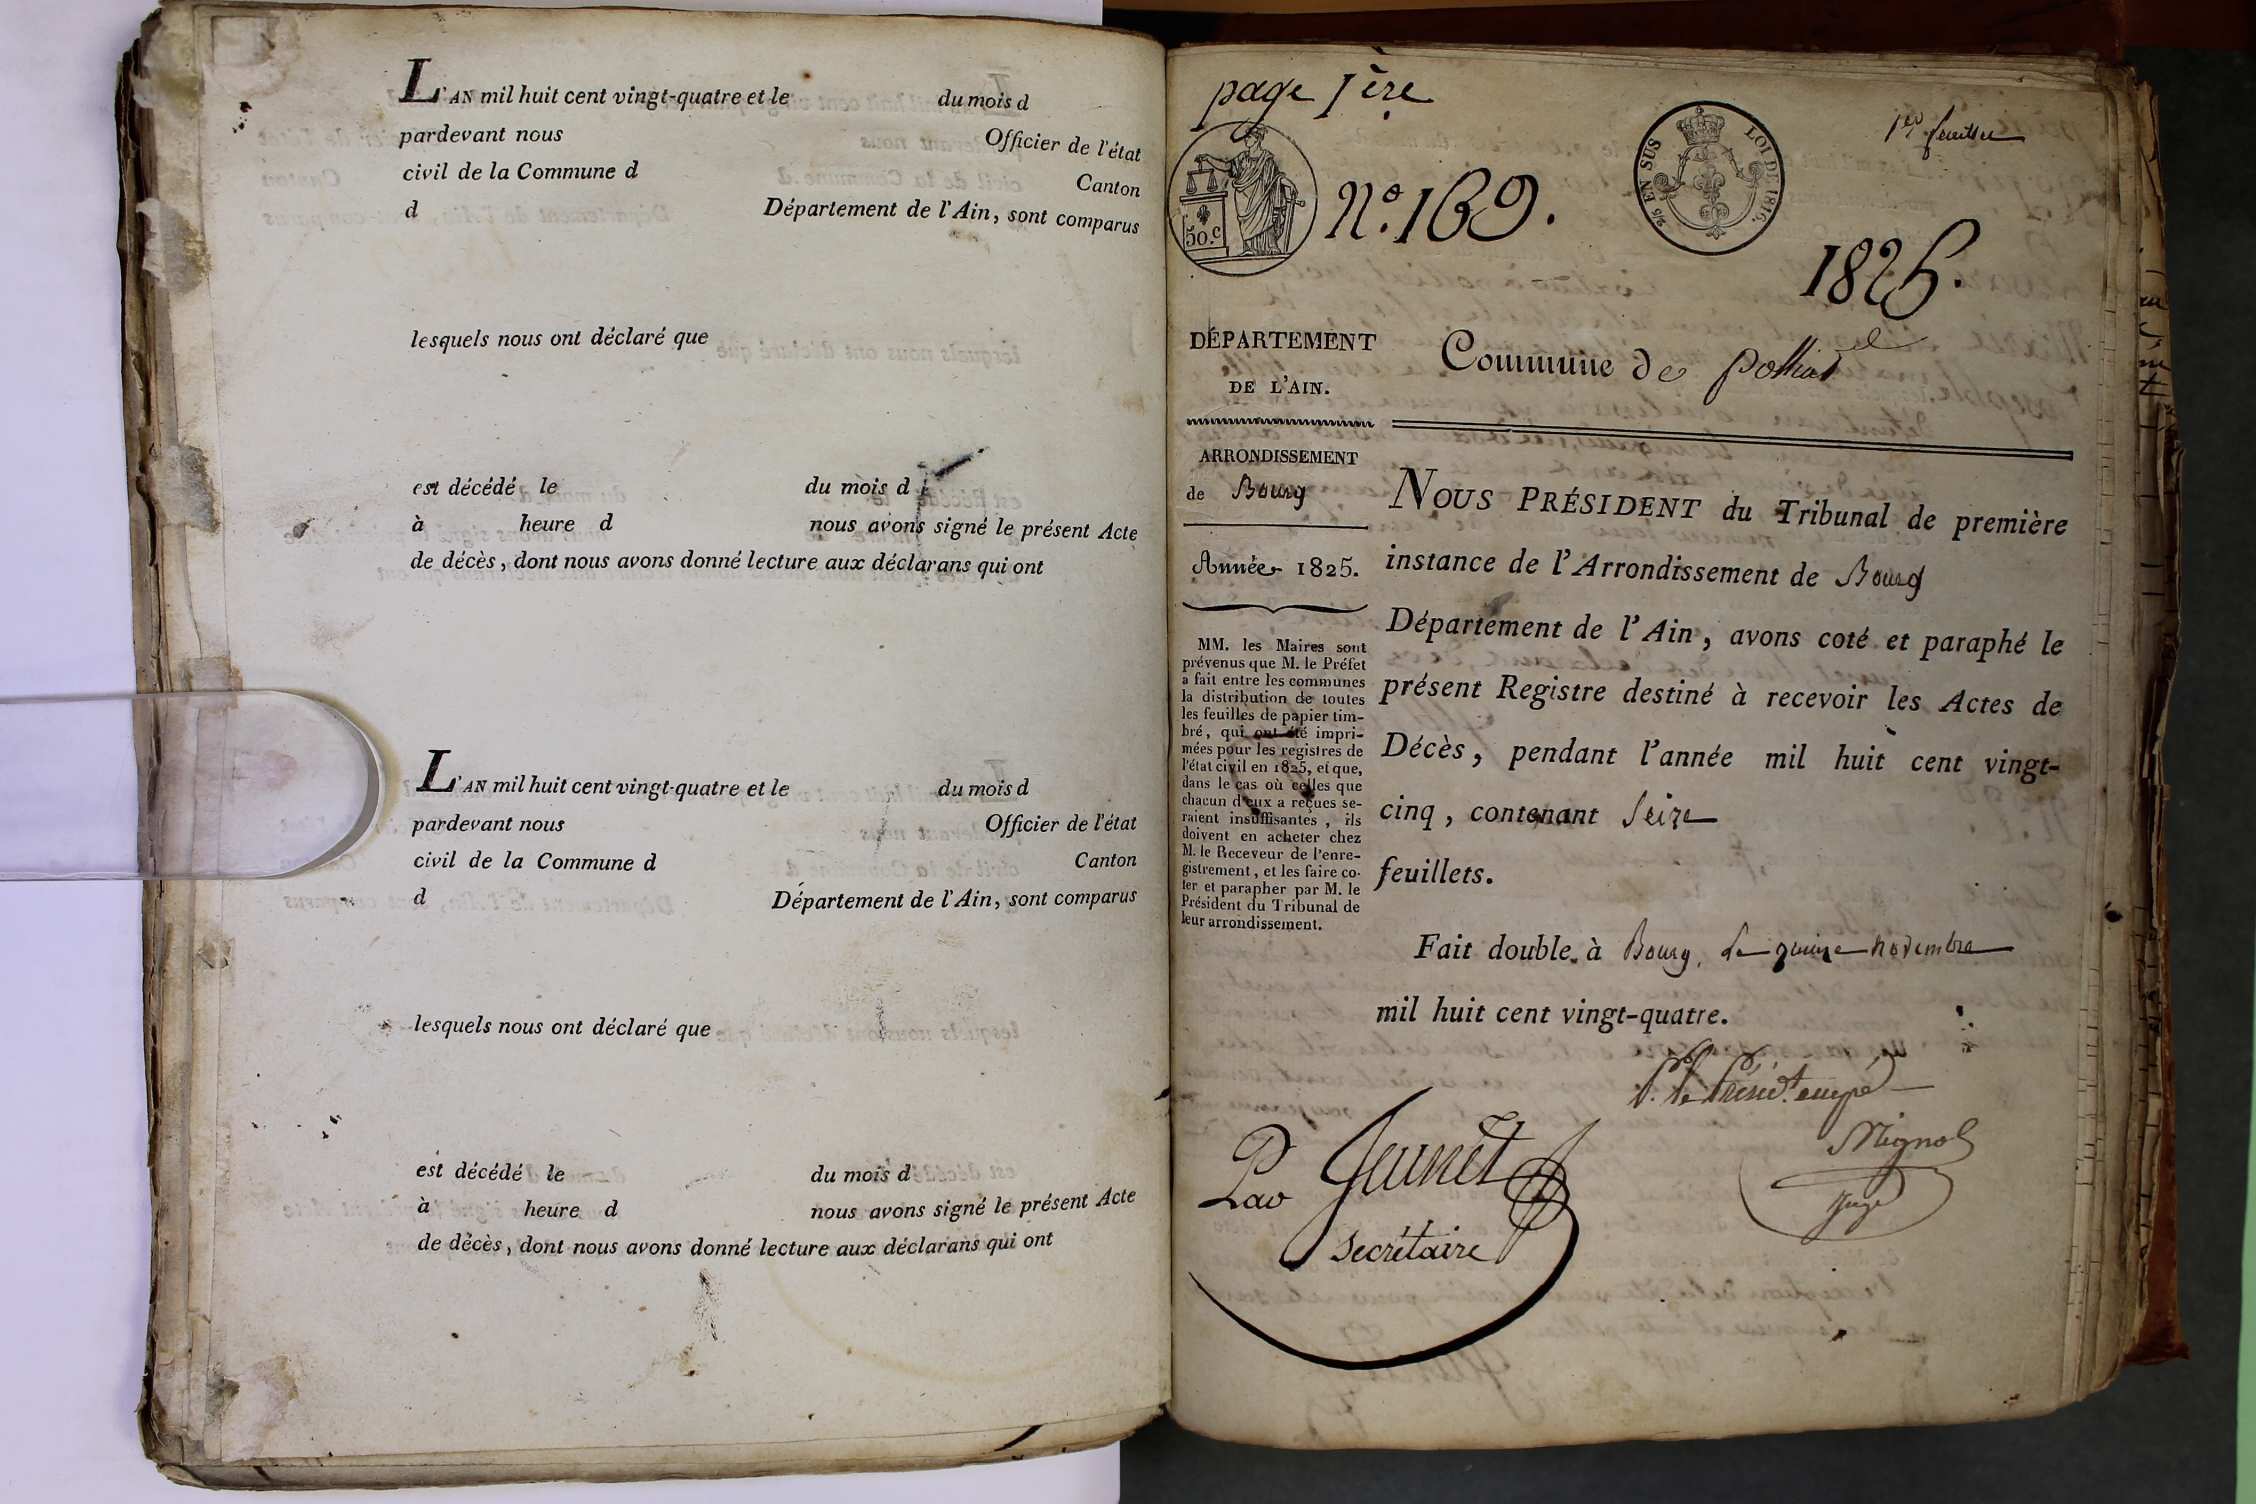 L'AN mil huit cent vingt-quatre et le du mois d
pardevant nous Officier de l'état
civil de la Commune d Canton
d Département de l'Ain, sont comparus
lesquels nous ont déclaré que
est décédé le du mois d
à heure d nous avons signé le présent Acte
de décès, dont nous avons donné lecture aux déclarans qui ont
L'AN mil huit cent vingt-quatre et le du mois d
pardevant nous Officier de l'état
civil de la Commune d Canton
d Département de l'Ain, sont comparus
lesquels nous ont déclaré que
est décédé le du mois d
à heure d nous avons signé le présent Acte
de décès, dont nous avons donné lecture aux déclarans qui ont
page 1ère
1er feuillet
50.c
N.o 169.
EN SUS LOI DE 1816.
1825.
DÉPARTEMENT
DE L'AIN.
Commune de Polliat
ARRONDISSEMENT
de Bourg
Année 1825.
MM. les Maires sont
prévenus que M. le Préfet
a fait entre les communes
la distribution de toutes
les feuilles de papier tim-
bré, qui ont été impri-
mées pour les registres de
l'état civil en 1825, et que,
dans le cas où celles que
chacun d'eux a reçues se-
raient insuffisantes, ils
doivent en acheter chez
M. le Receveur de l'enre-
gistrement, et les faire co-
ter et parapher par M. le
Président du Tribunal de
leur arrondissement.
NOUS PRÉSIDENT du Tribunal de première
instance de l'Arrondissement de Bourg
Département de l'Ain, avons coté et paraphé le
présent Registre destiné à recevoir les Actes de
Décès, pendant l'année mil huit cent vingt-
cinq, contenant Seize
feuillets.
Fait double à Bourg, le quinze novembre
mil huit cent vingt-quatre.
P. le Présidt. empé
Mignot
Juge
Jeunet
Secrétaire